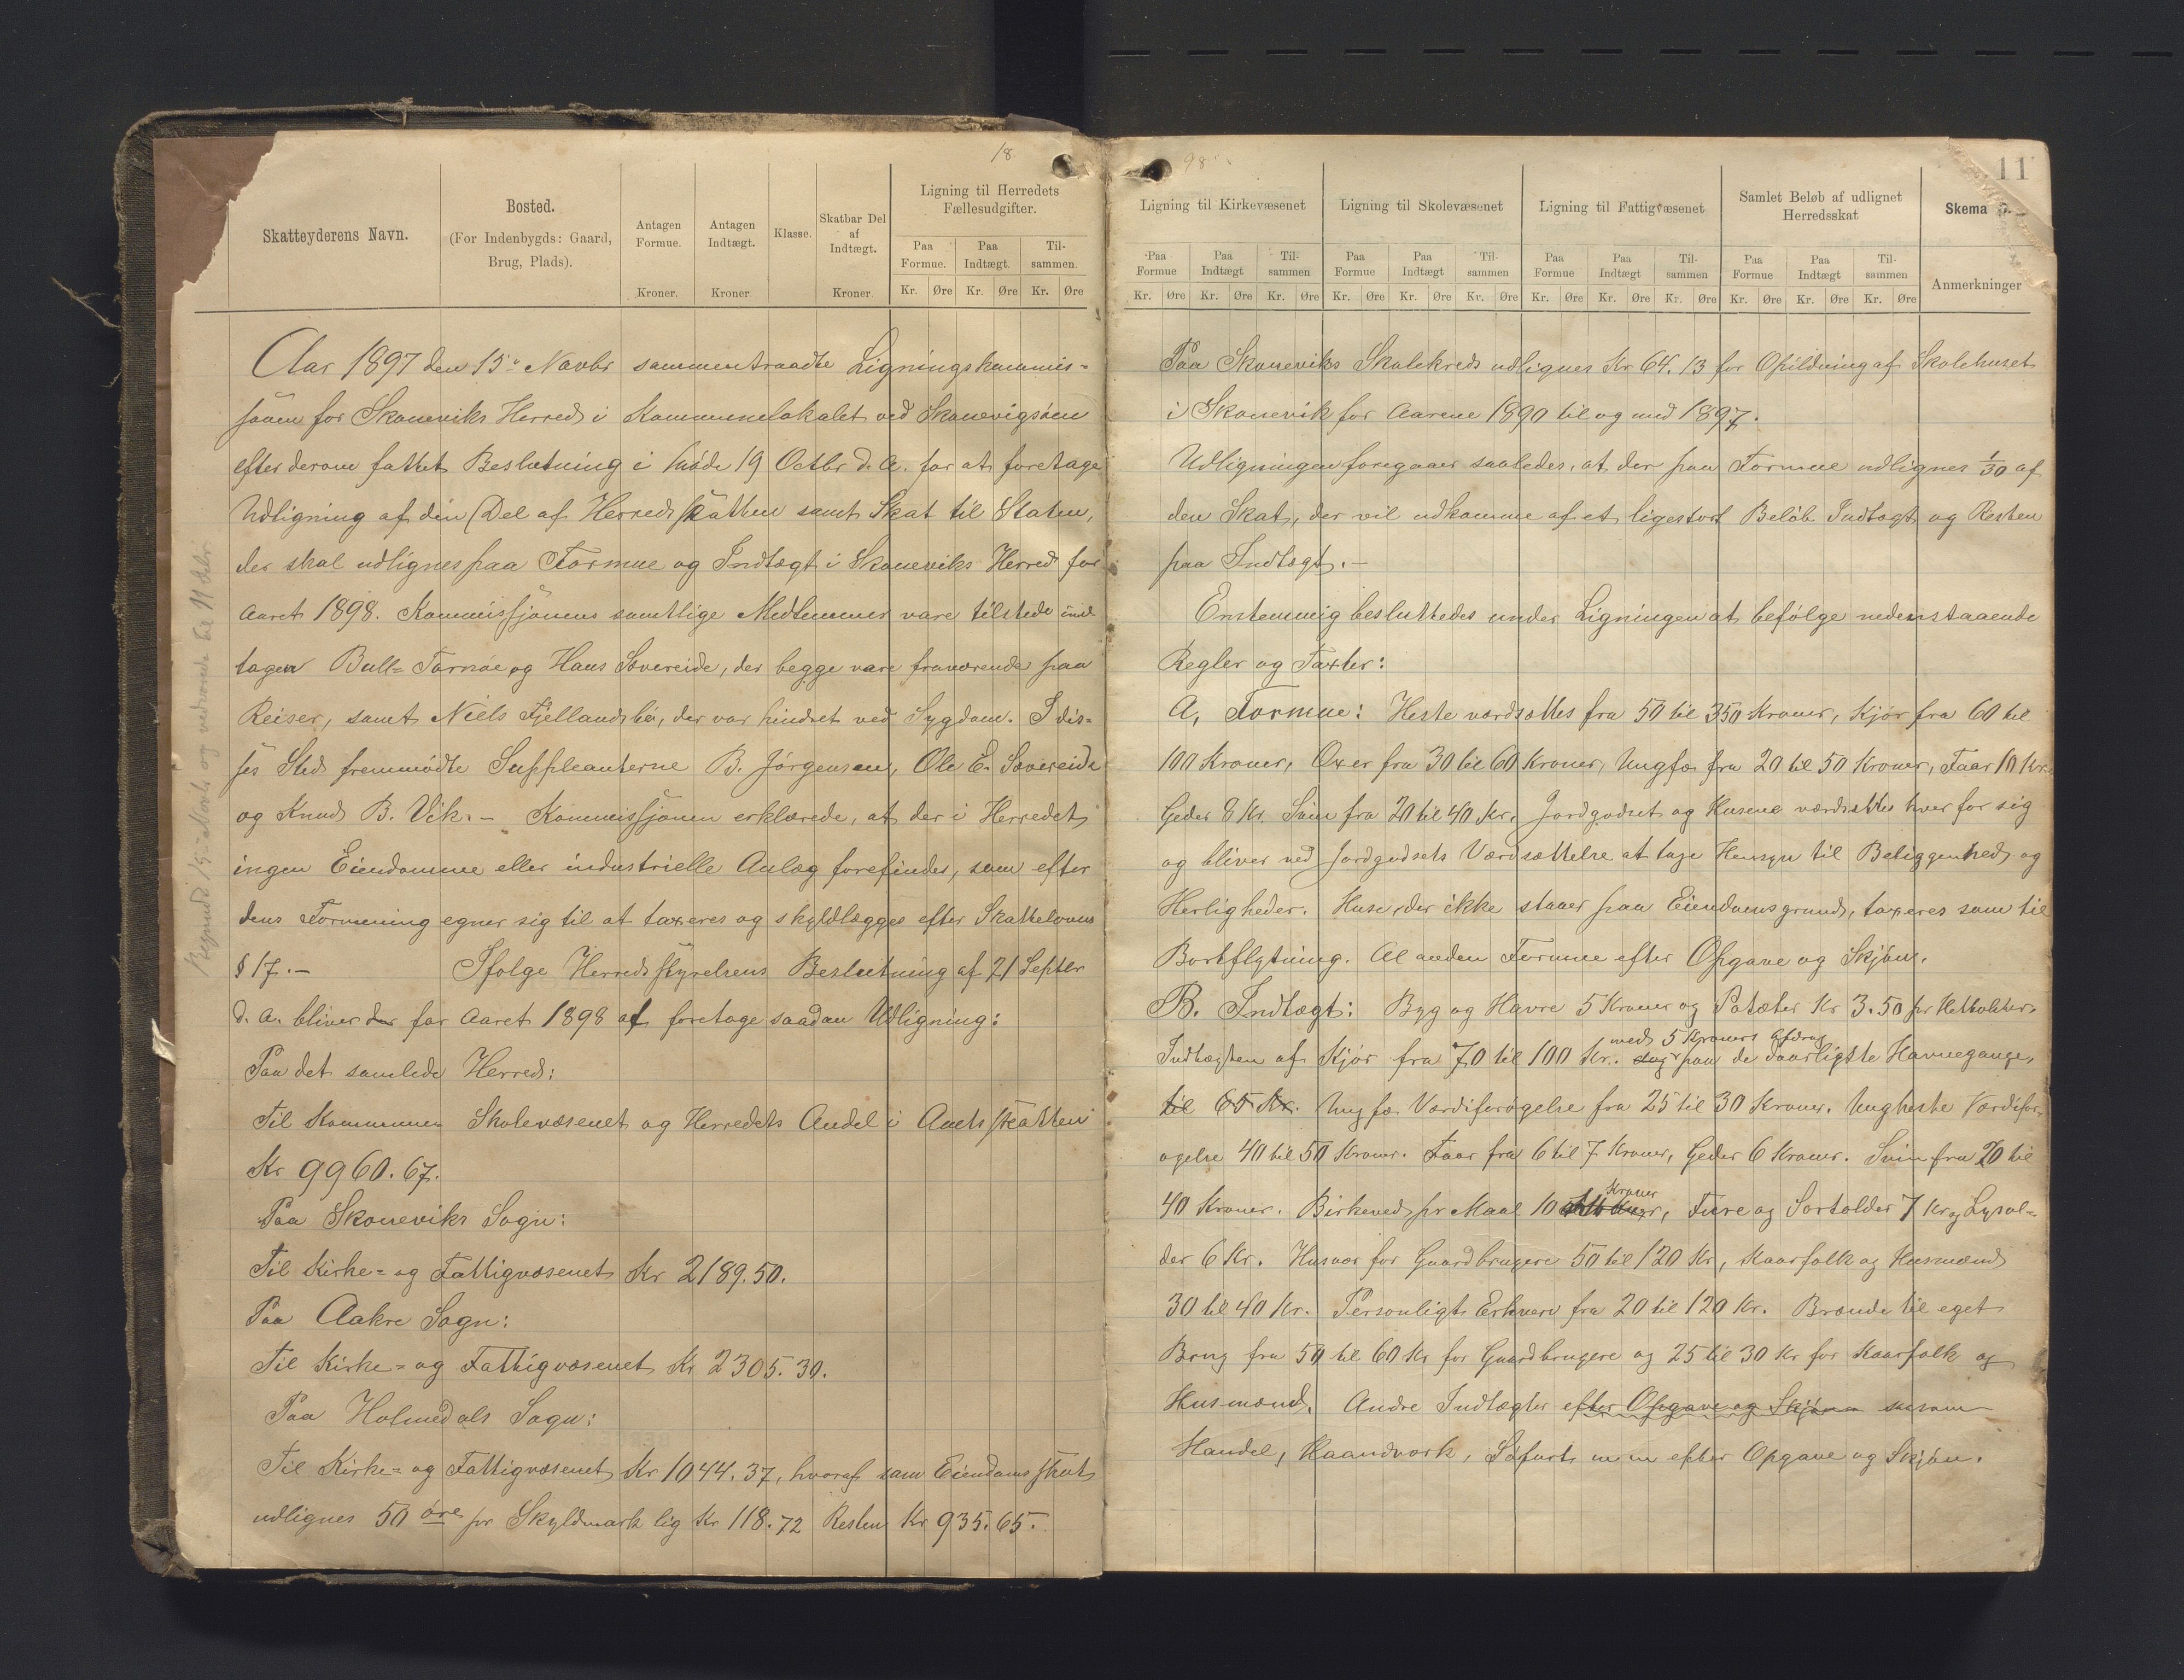 18
Skatteyderens Navn.
Bosted.
(For Indenbygds: Gaard,
Brug, Plads).
Antagen
Formue.
Kroner.
Antagen
Indtægt.
Kroner
Klasse.
Skatbar Del
af
Indtægt.
Kroner
Ligning til Herredets
Fællesudgifter.
Paa Formue.
Paa Indtægt.
Til-sammen.
Kr. Øre Kr. Øre Kr. Øre
Aar 1897 den 15de Novbr sammentraadte Ligningskommis-
sjonen for Skoneviks Herred i Kommunelokalet ved Skonevigsøen
efter derom fattet Beslutning i Møde 19 Octbr d. A. for at foretage
Udligning af den Del af Herredsskatten samt Skat til Staten,
der skal udlignes paa Formue og Indtægt i Skoneviks Herred for
Aaret 1898. Kommissjonens samtlige Medlemmer vare tilstede und-
tagen Bull-Tornøe og Hans Sovereide, der begge vare fraværende paa
Reiser, samt Niels Fjellandsbø, der var hindret ved Sygdom. I dis-
ses Sted fremmødte Suppleanterne B. Jørgensen, Ole E. Sovereide
og Knud B. Vik. - Kommissjonen erklærede, at der i Herredet
ingen Eiendomme eller industrielle Anlæg forefindes, som efter
dens Formening egner sig til at taxeres og skyldlægges efter Skattelovens
§ 17. - Ifølge Herredsstyrelsens Beslutning af 21 Septbr
d. A. bliver der for Aaret 1898 at foretage saadan Udligning:
Paa det samlede Herred:
Til Kommunen Skolevæsenet og Herredets Andel i Amtsskatten
Kr 9960.67.
Paa Skoneviks Sogn:
Til Kirke- og Fattigvæsenet Kr 2189.50.
Paa Aakre Sogn:
Til Kirke- og Fattigvæsenet Kr 2305.30.
Paa Holmedals Sogn:
Til Kirke- og Fattigvæsenet Kr 1044.37, hvoraf som Eiendomsskat
udlignes 50 øre pr Skyldmark lig Kr 118.72 Resten Kr 935.65.
Begyndt 15de Novbr og vedvarende til 11 Debr.
98
11
Ligning til Kirkevæsenet
Ligning til Skolevæsenet
Ligning til Fattigvæsenet
Samlet Beløb af udlignet
Herredsskat
Skema
Anmerkninger
Paa Formue Paa Indtægt Til-sammen Paa Formue Paa Indtægt Til-sammen Paa Formue Paa Indtægt Til-sammen Paa Formue Paa Indtægt Til-sammen
Kr. Øre Kr. Øre Kr. Øre Kr. Øre Kr. Øre Kr. Øre Kr. Øre Kr. Øre Kr. Øre Kr. Øre Kr. Øre Kr. Øre
Paa Skoneviks Skolekreds udlignes Kr 64.13 for Opildning af Skolehuset
i Skonevik for Aarene 1890 til og med 1897.
Udligningen foregaar saaledes, at der paa Formue udlignes 1/30 af
den Skat, der vil udkomme af et ligestort Beløb Indtægt og Resten
paa Indtægt. -
Enstemmig besluttedes under Ligningen at befølge nedenstaaende
Regler og Taxter:
A, Formue: Heste værdsættes fra 50 til 350 Kroner, Kjør fra 60 til
100 Kroner, Oxer fra 30 til 60 Kroner, Ungfæ fra 20 til 50 Kroner, Faar 10 Kr.
Geder 8 Kr. Svin fra 20 til 40 Kr. Jordgodset og Husene værdsættes hver for sig
og bliver ved Jordgodsets Værdsættelse at tage Hensyn til Beliggenhed og
Herligheder. Huse, der ikke staaer paa Eiendomsgrund, taxeres som til
Bortflytning. Al anden Formue efter Opgave og Skjøn.
B. Indtægt: Byg og Havre 5 Kroner og Poteter Kr 3.50 pr Hektoliter.
med 5 Kroners Afdrag
Indtægten af Kjør fra 70 til 100 Kr. og paa de daarligste Havnegange,
til 65 Kr. Ungfæ Værdiforøgelse fra 25 til 30 Kroner. Ungheste Værdifor-
øgelse 40 til 50 Kroner. Faar fra 6 til 7 Kroner, Geder 6 Kroner. Svin fra 20 til
Kroner
40 Kroner. Birkeved pr Maal 10, Fure og Sortolder 7 Kr og Lysol-
der 6 Kr. Husvær for Gaardbrugere 50 til 120 Kr, Kaarfolk og Husmænd
30 til 40 Kr. Personligt Erhverv fra 20 til 120 Kr. Brænde til eget
Brug fra 50 til 60 Kr for Gaardbrugere og 25 til 30 Kr for Kaarfolk og
Husmænd. Andre Indtægter efter Opgave og Skjøn saasom
Handel, Haandverk, Søfart m m efter Opgave og Skjøn.